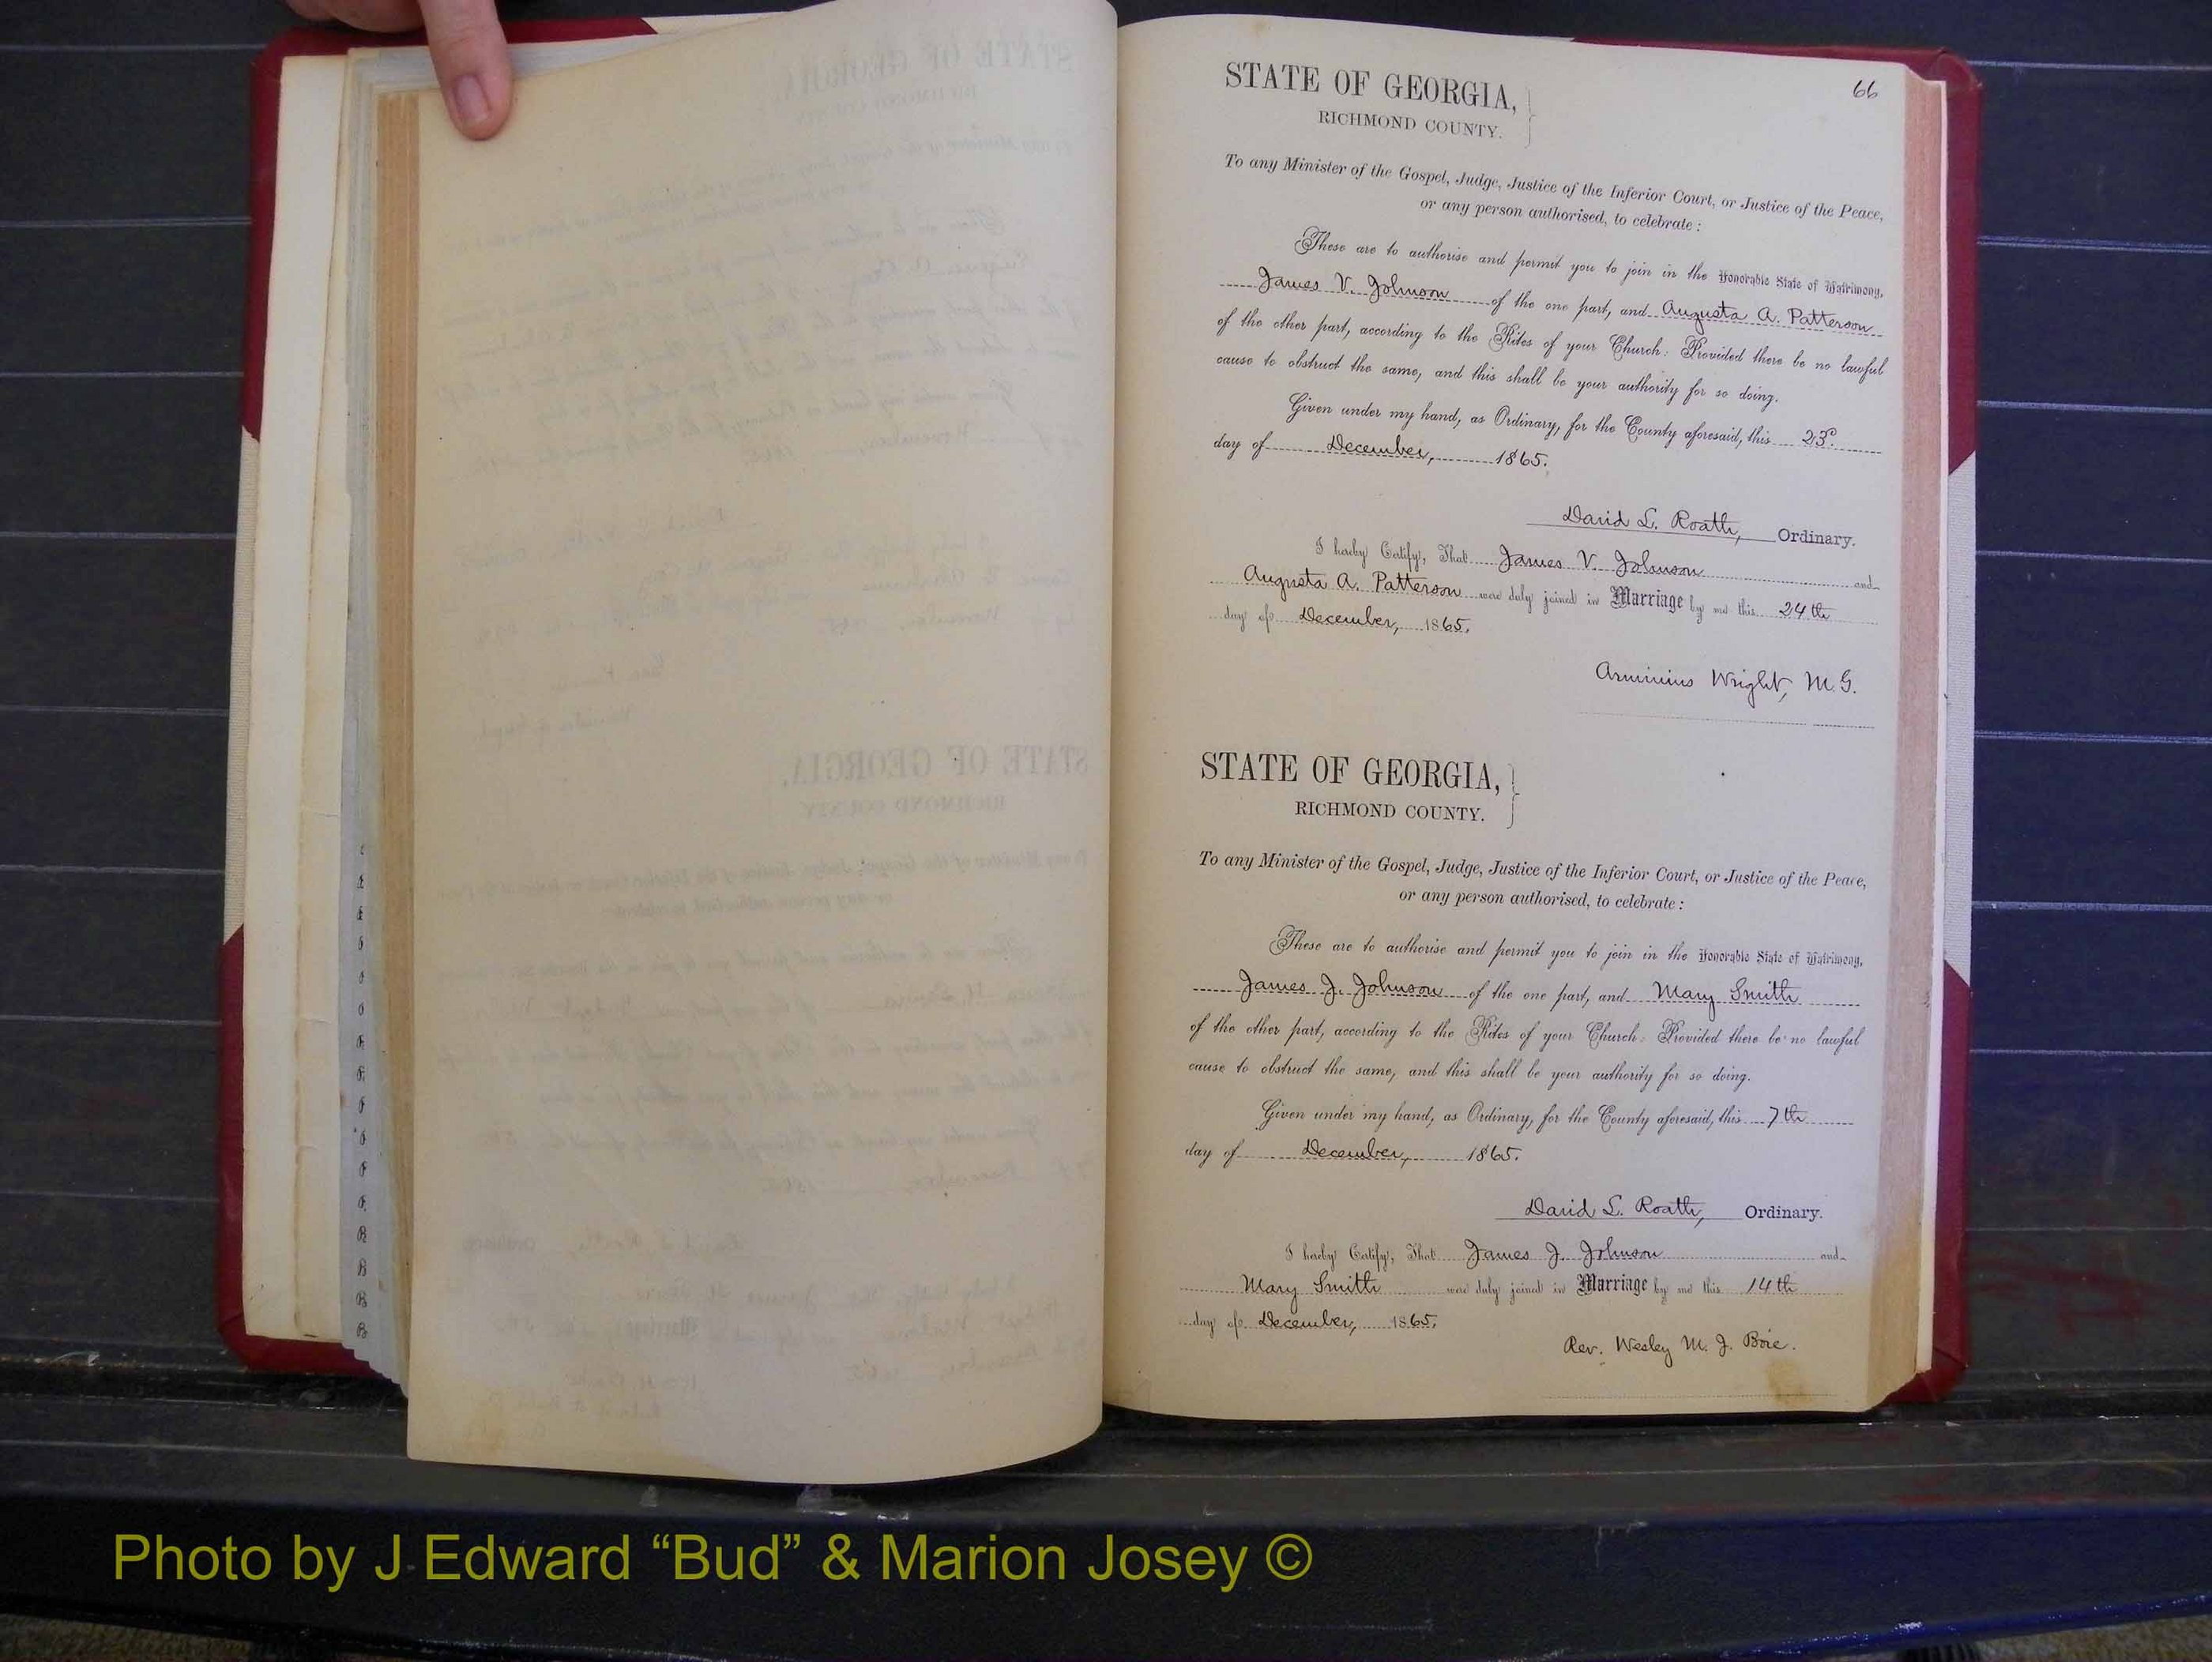 66
STATE OF GEORGIA,
RICHMOND COUNTY.
To any Minister of the Gospel, Judge, Justice of the Inferior Court, or Justice of the Peace,
or any person authorised, to celebrate:
These are to authorise and permit you to join in the Honorable State of Matrimony,
James V. Johnson of the one part, and Augusta A. Patterson
of the other part, according to the Rites of your Church: Provided there be no lawful
cause to obstruct the same, and this shall be your authority for so doing.
Given under my hand, as Ordinary, for the County aforesaid, this 23d.
day of December, 1865.
David L. Roath, Ordinary.
I hereby Certify, That James V. Johnson and
Augusta A. Patterson were duly joined in Marriage by me this 24th
day of December, 1865.
Arminius Wright, M.G.
STATE OF GEORGIA,
RICHMOND COUNTY.
To any Minister of the Gospel, Judge, Justice of the Inferior Court, or Justice of the Peace,
or any person authorised, to celebrate:
These are to authorise and permit you to join in the Honorable State of Matrimony,
James J. Johnson of the one part, and Mary Smith
of the other part, according to the Rites of your Church: Provided there be no lawful
cause to obstruct the same, and this shall be your authority for so doing.
Given under my hand, as Ordinary, for the County aforesaid, this 7th
day of December, 1865.
David L. Roath, Ordinary.
I hereby Certify, That James J. Johnson and
Mary Smith were duly joined in Marriage by me this 14th
day of December, 1865.
Rev. Wesley M. J. Boie.
Photo by J Edward “Bud” & Marion Josey ©